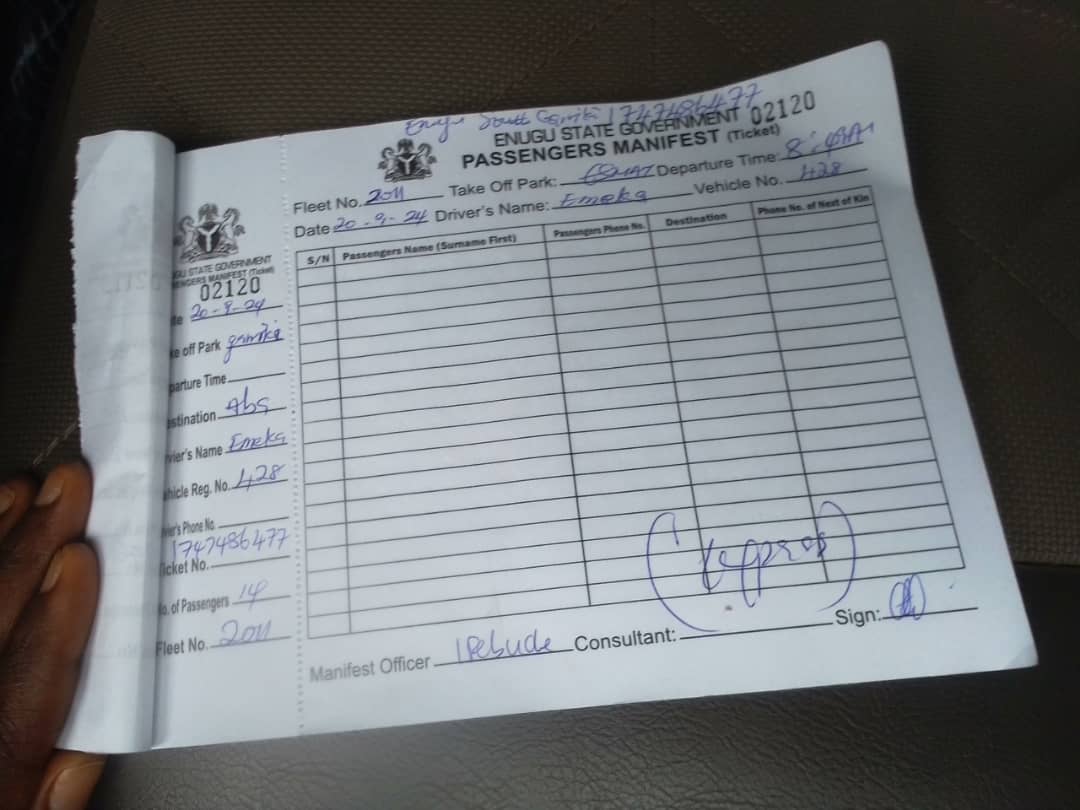 Enugu South Gariki 1747486477
ENUGU STATE GOVERNMENT 02120
PASSENGERS MANIFEST (Ticket)
Fleet No. 2011 Take Off Park: Departure Time: 8:
Date 20-9-24 Driver's Name: Emeka Vehicle No. 428
S/N Passengers Name (Surname First) Passengers Phone No. Destination Phone No. of Next of Kin
Manifest Officer Consultant: Sign:
GU STATE GOVERNMENT
ENGERS MANIFEST (Ticket)
02120
te 20-9-24
ke off Park gariki
parture Time
stination Aba
iver's Name Emeka
hicle Reg. No. 428
iver's Phone No.
1747486477
icket No.
o. of Passengers 14
Fleet No. 2011